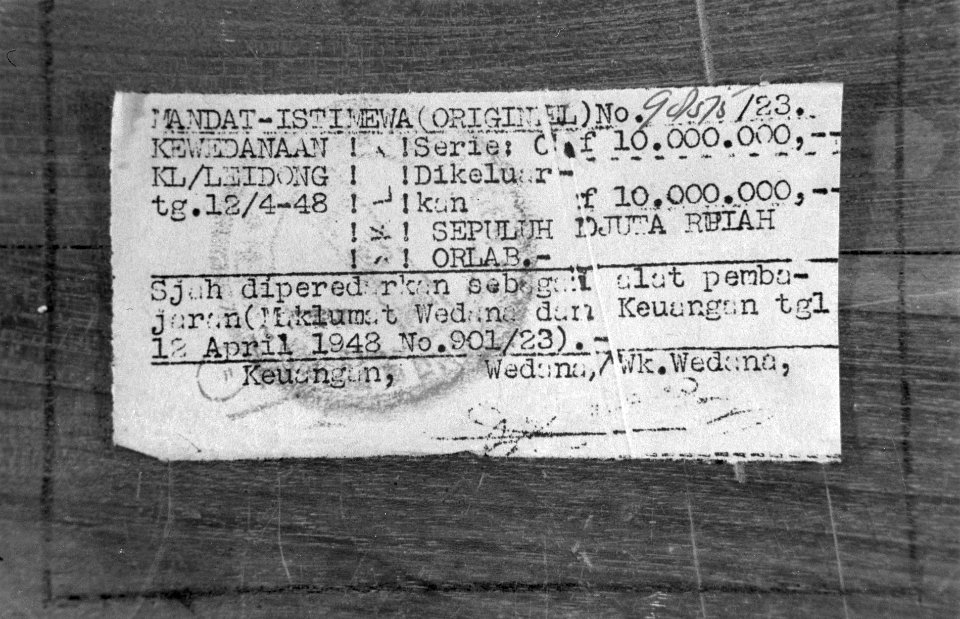 MANDAT-ISTIMEWA(ORIGINEEL)No. /23.
KEWEDANAAN ! !Serie: C. f 10.000.000,--
KL/LEIDONG ! !Dikeluar-
tg.12/4-48 ! !kan f 10.000.000,--
! ! SEPULUH DJUTA RUPIAH
! ! ORLAB.-
Sjah diperedarkan sebagai alat pemba-
jaran(Maklumat Wedana dan Keuangan tgl
12 April 1948 No.901/23).-
Keuangan, Wedana,/Wk.Wedana,